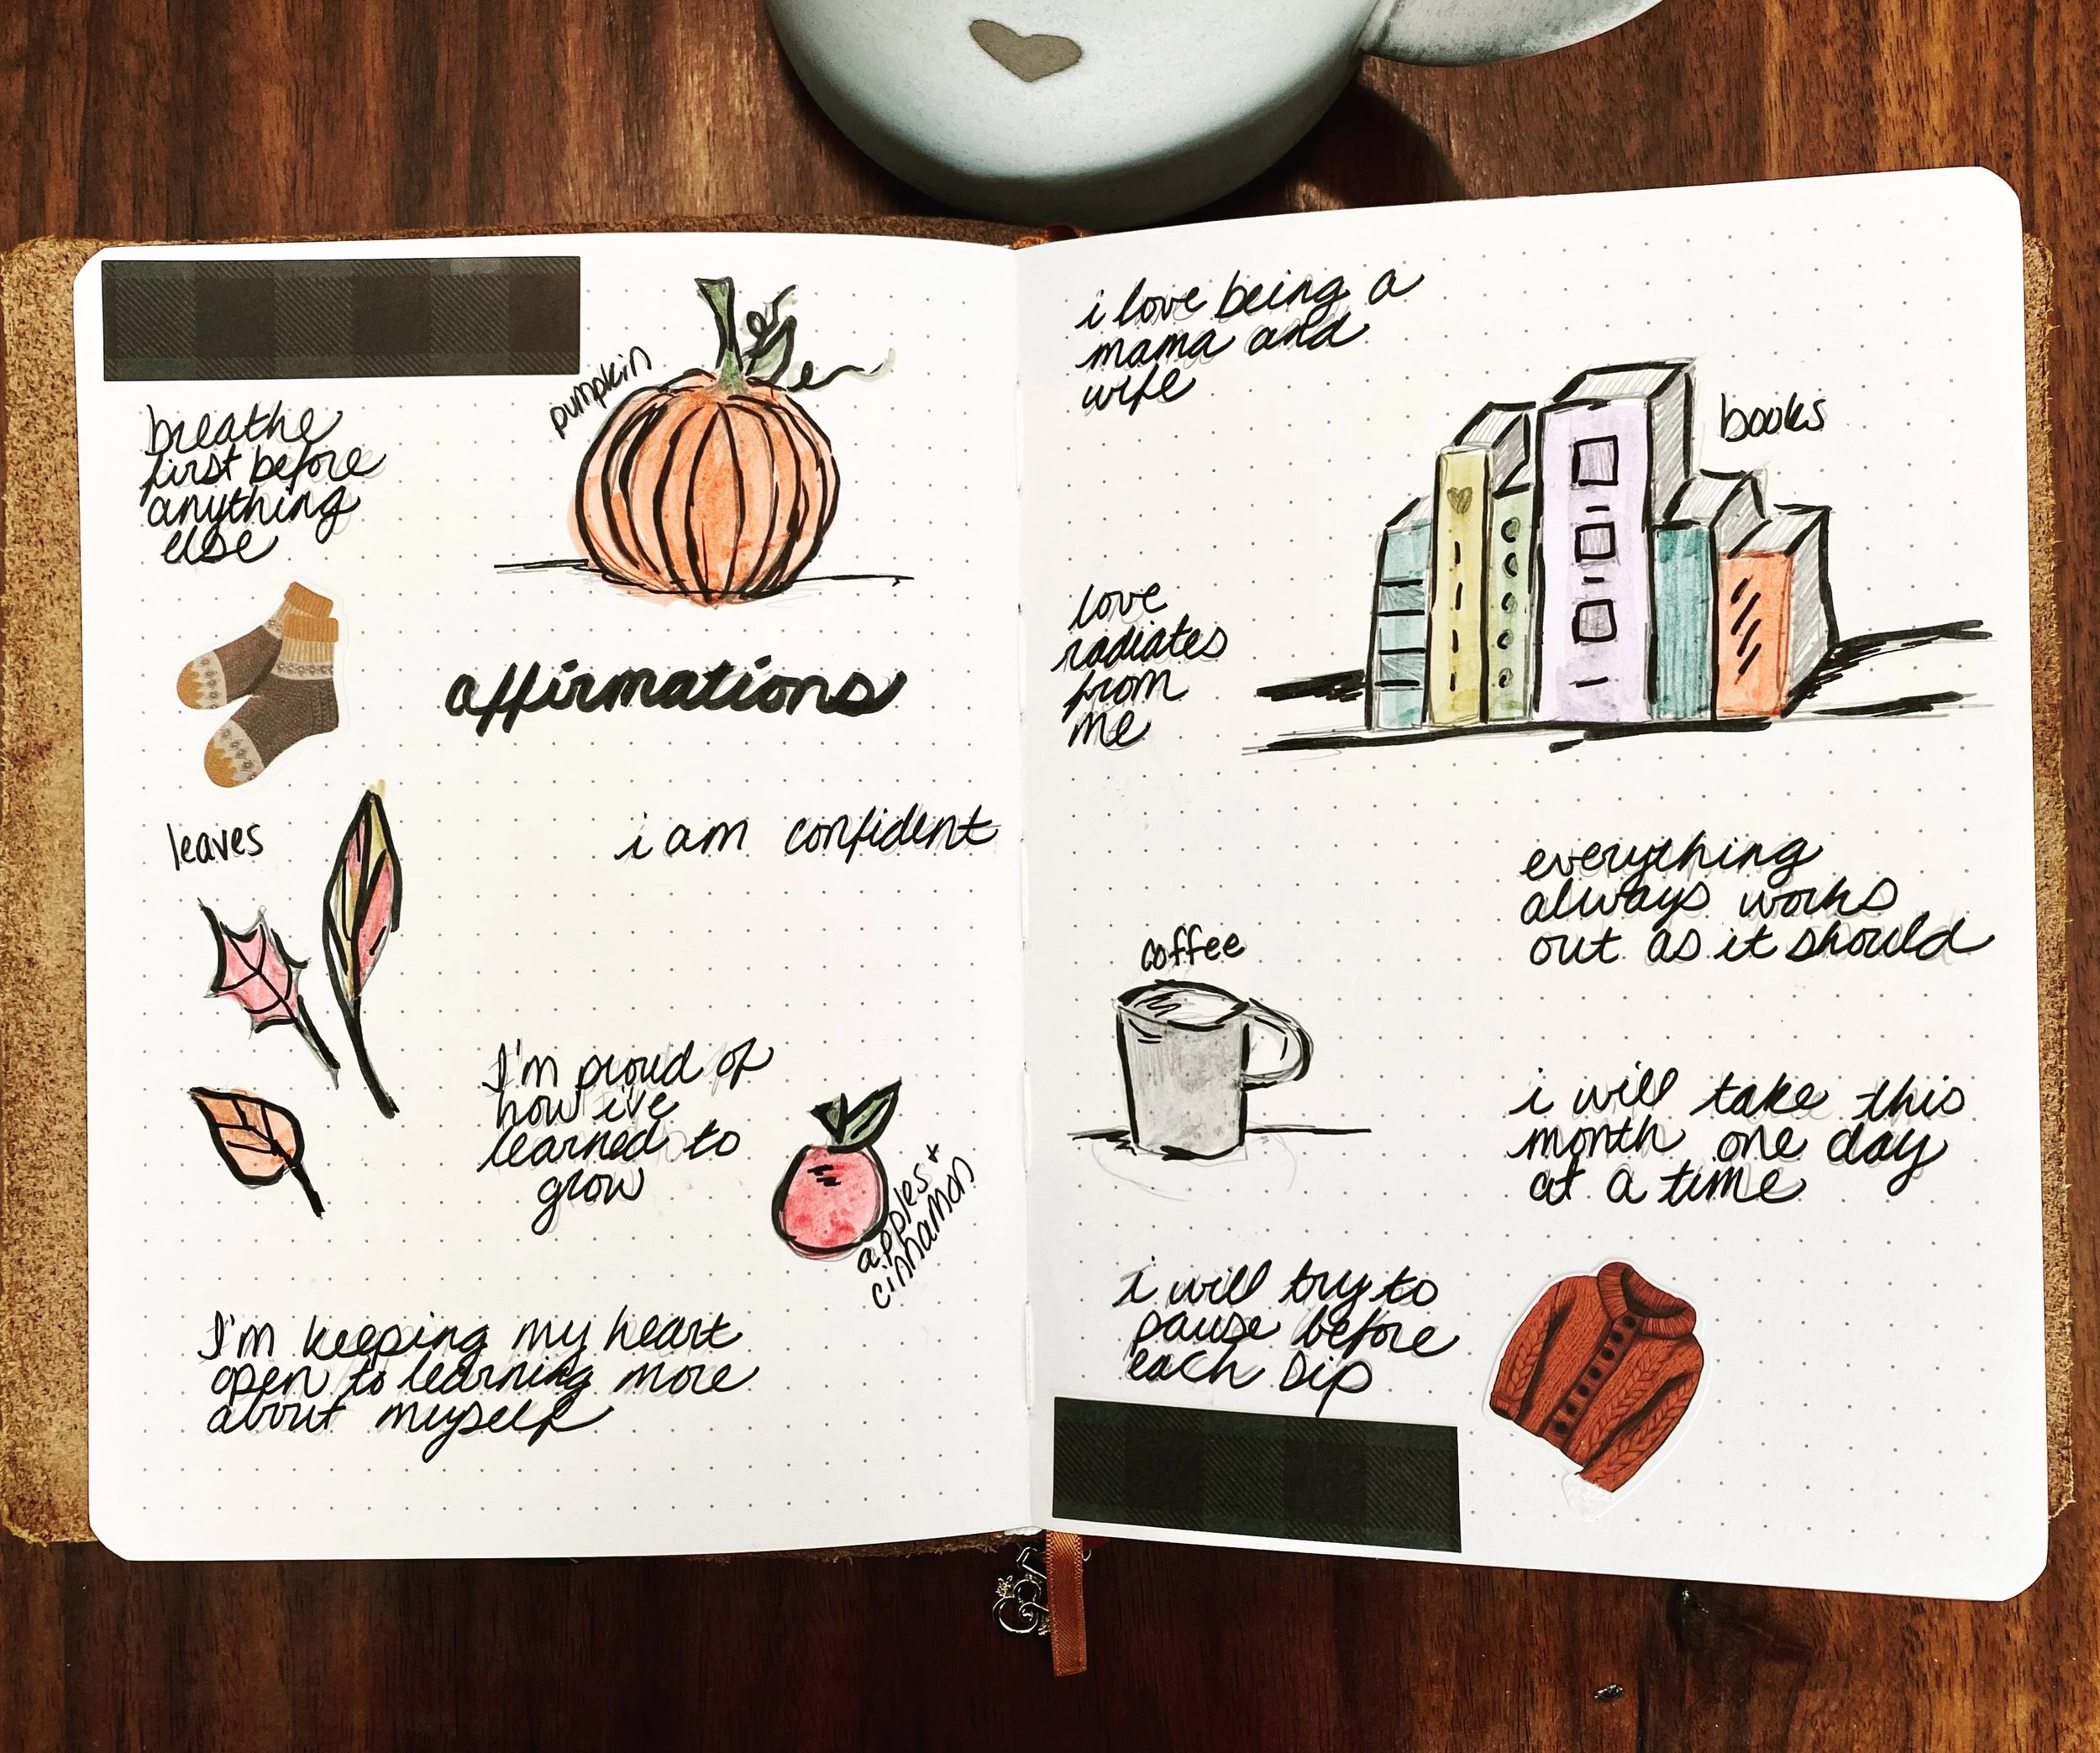 pumpkin
breathe
first before
anything
else
affirmations
leaves
i am confident
I'm proud of
how i've
learned to
grow
apples +
cinnamon
I'm keeping my heart
open to learning more
about myself
i love being a
mama and
wife
books
love
radiates
from
me
everything
always works
out as it should
coffee
i will take this
month one day
at a time
i will try to
pause before
each sip